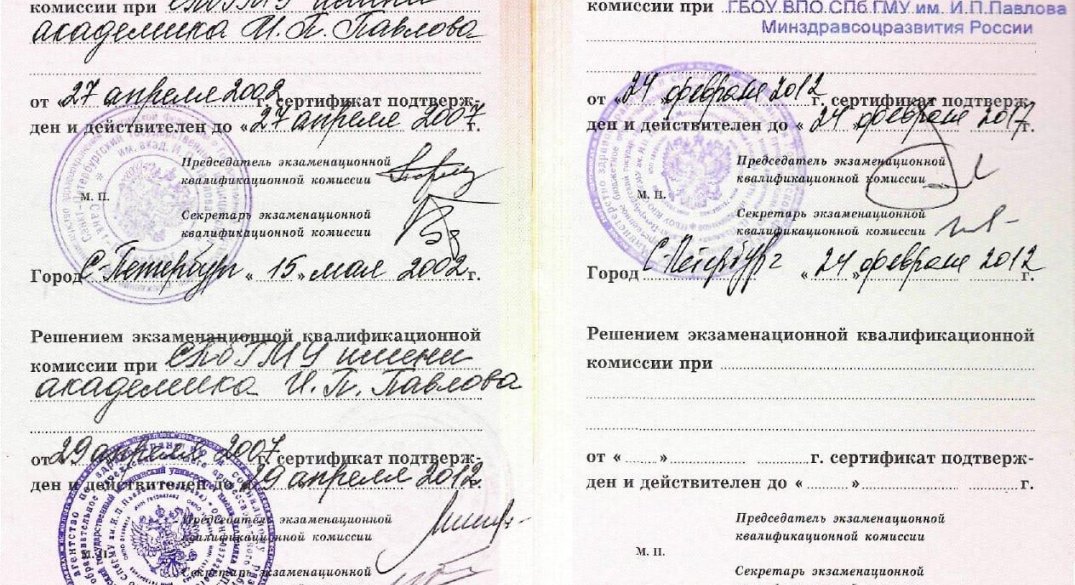 комиссии при СПбГМУ имени
академика И. П. Павлова
от «27 апреля 2002 г. сертификат подтверж-
ден и действителен до «27 апреля 2007 г.
Председатель экзаменационной
квалификационной комиссии
М. П.
Секретарь экзаменационной
квалификационной комиссии
Город С-Петербург «15» мая 2002 г.
Решением экзаменационной квалификационной
комиссии при СПбГМУ имени
академика И. П. Павлова
от 29 апреля 2007 г. сертификат подтверж-
ден и действителен до «29 апреля 2012 г.
Председатель экзаменационной
квалификационной комиссии
М. П.
Секретарь экзаменационной
комиссии при ГБОУ ВПО СПб ГМУ им. И.П.Павлова
Минздравсоцразвития России
от «24» февраля 2012 г. сертификат подтверж-
ден и действителен до «24» февраля 2017 г.
Председатель экзаменационной
квалификационной комиссии
М. П.
Секретарь экзаменационной
квалификационной комиссии
Город С-Петербург «24» февраля 2012 г.
Решением экзаменационной квалификационной
комиссии при
от « » г. сертификат подтверж-
ден и действителен до « » г.
Председатель экзаменационной
квалификационной комиссии
М. П.
Секретарь экзаменационной